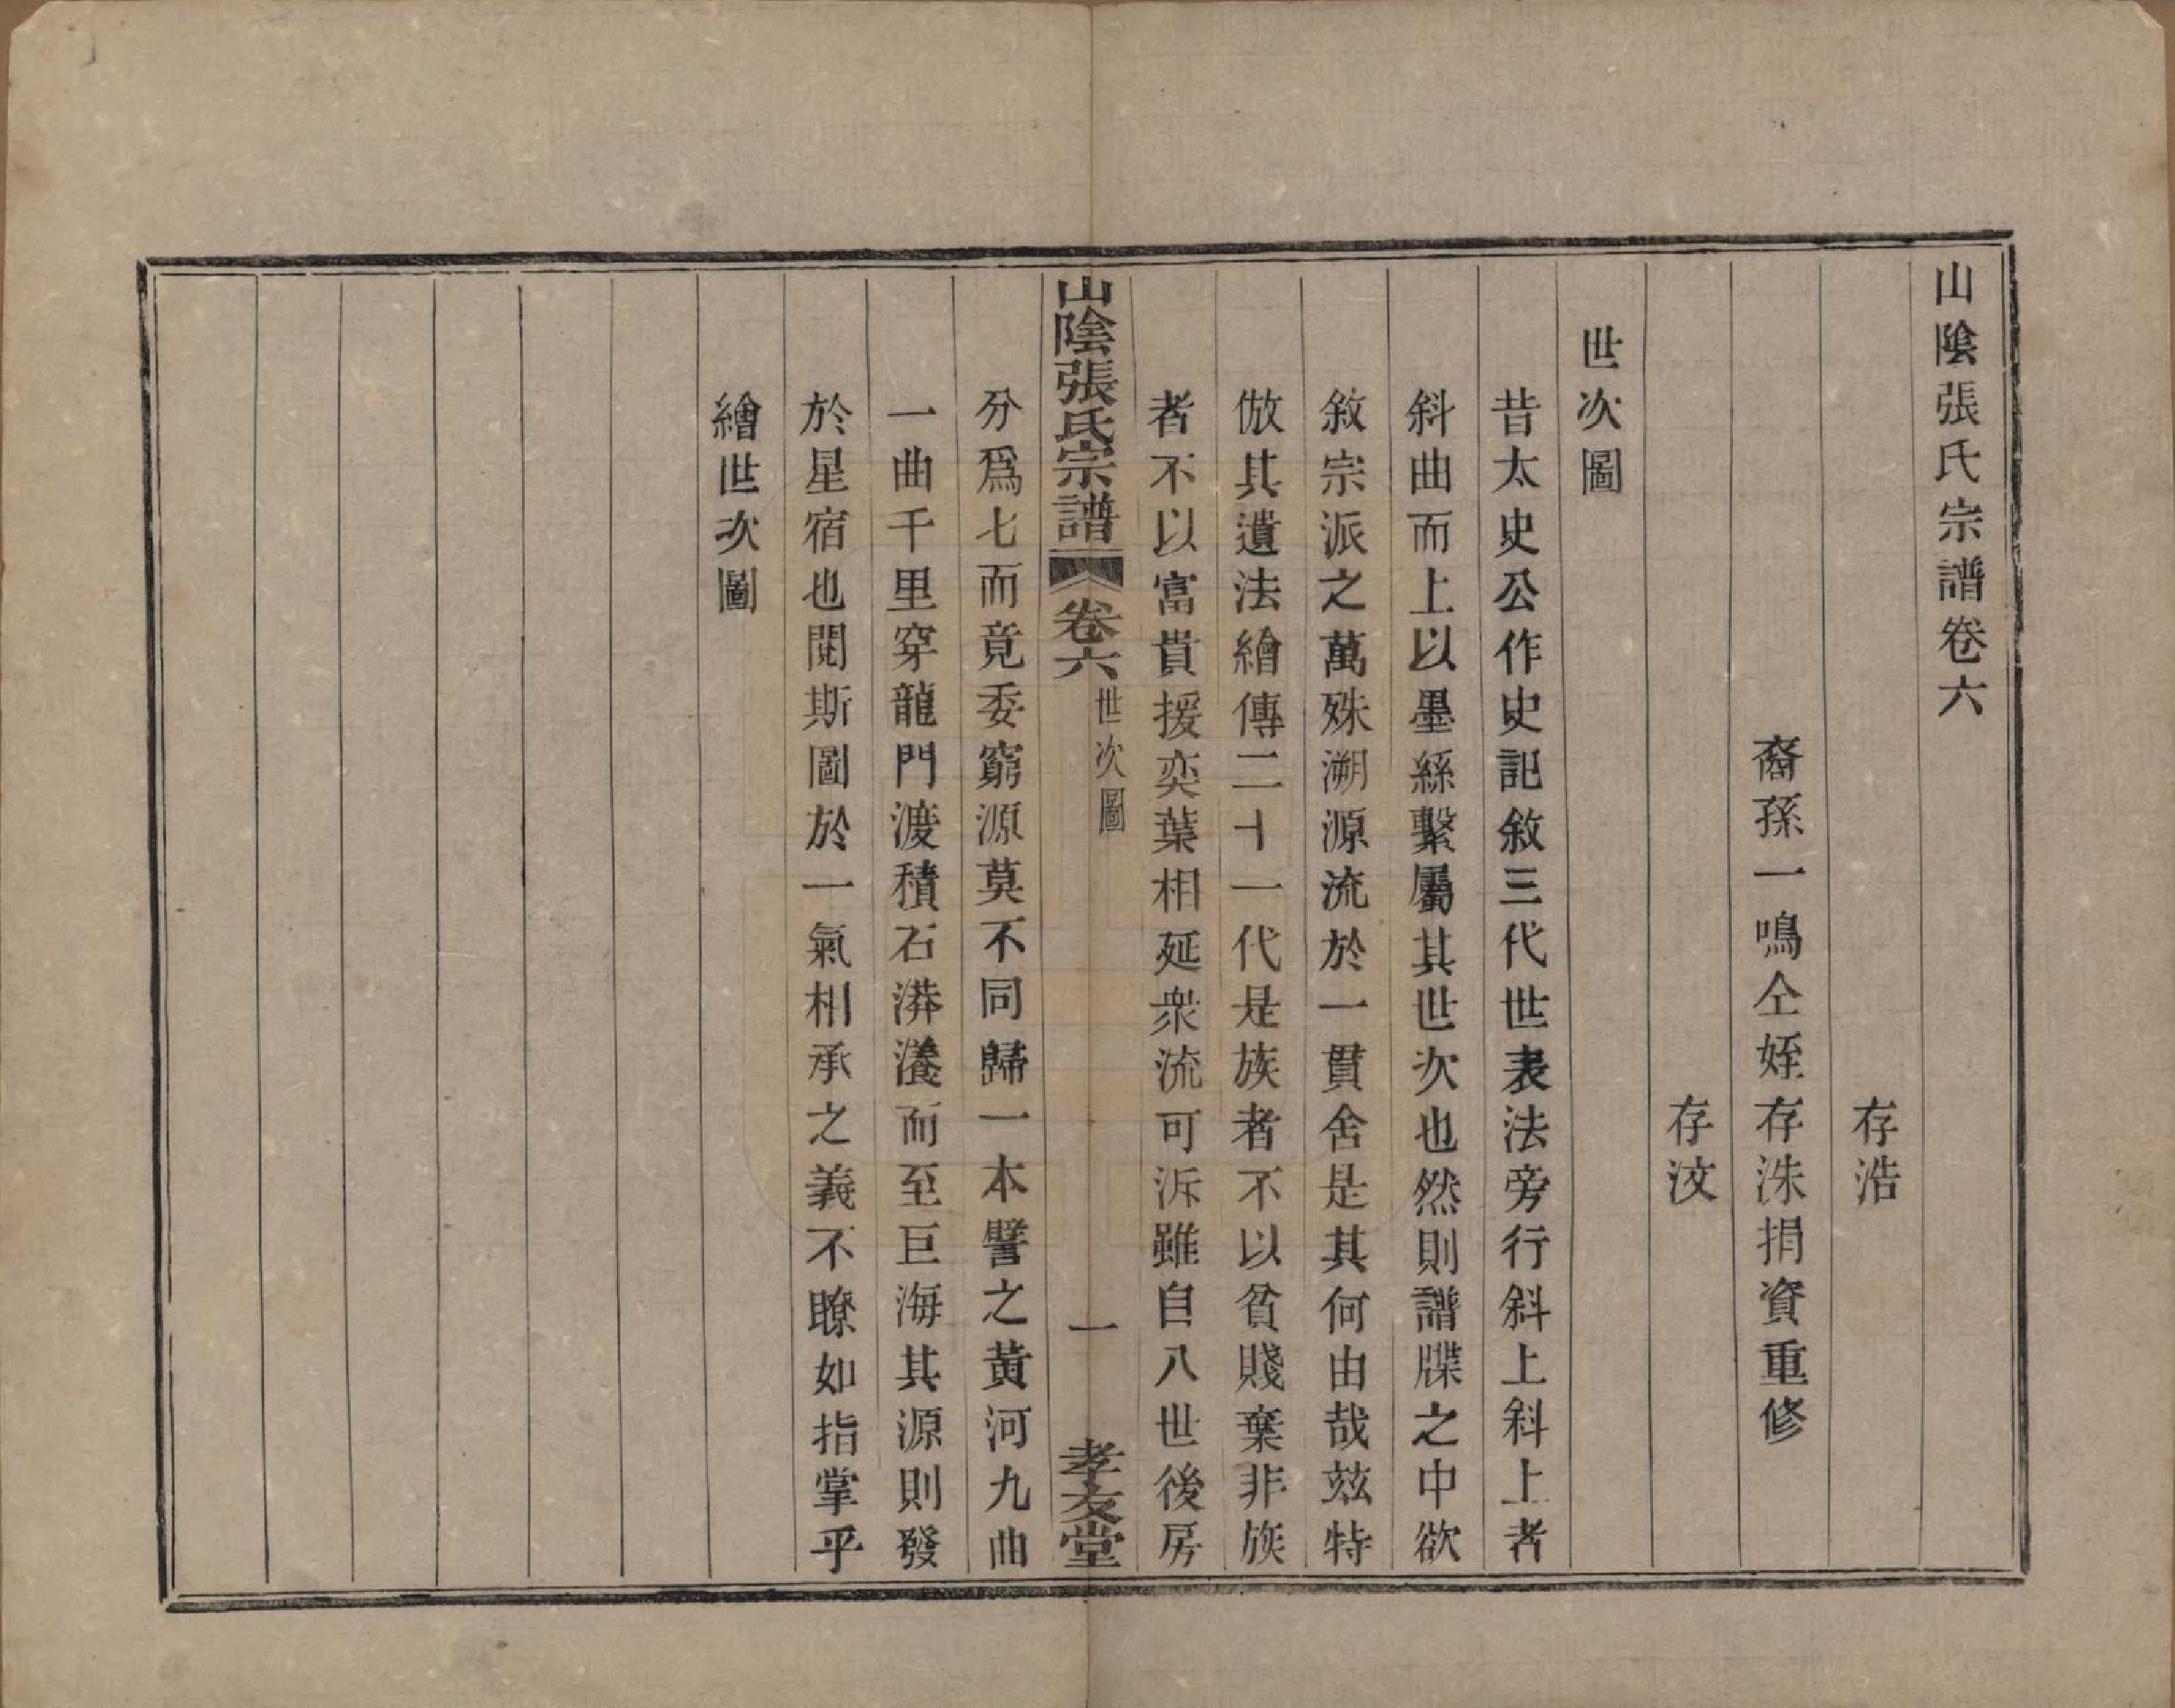 山陰張氏宗譜卷六
存浩
裔孫一鳴仝姪存洙捐資重修
存汶
世次圖
昔太史公作史記敘三代世表法旁行斜上斜上者
斜曲而上以墨絲繫屬其世次也然則譜牒之中欲
敘宗派之萬殊溯源流於一貫舍是其何由哉茲特
倣其遺法繪傳二十一代是族者不以貧賤棄非族
者不以富貴援奕葉相延衆流可泝雖自八世後房
山陰張氏宗譜 卷六 世次圖 一 孝友堂
分爲七而竟委窮源莫不同歸一本譬之黃河九曲
一曲千里穿龍門渡積石漭瀁而至巨海其源則發
於星宿也閱斯圖於一氣相承之義不瞭如指掌乎
繪世次圖